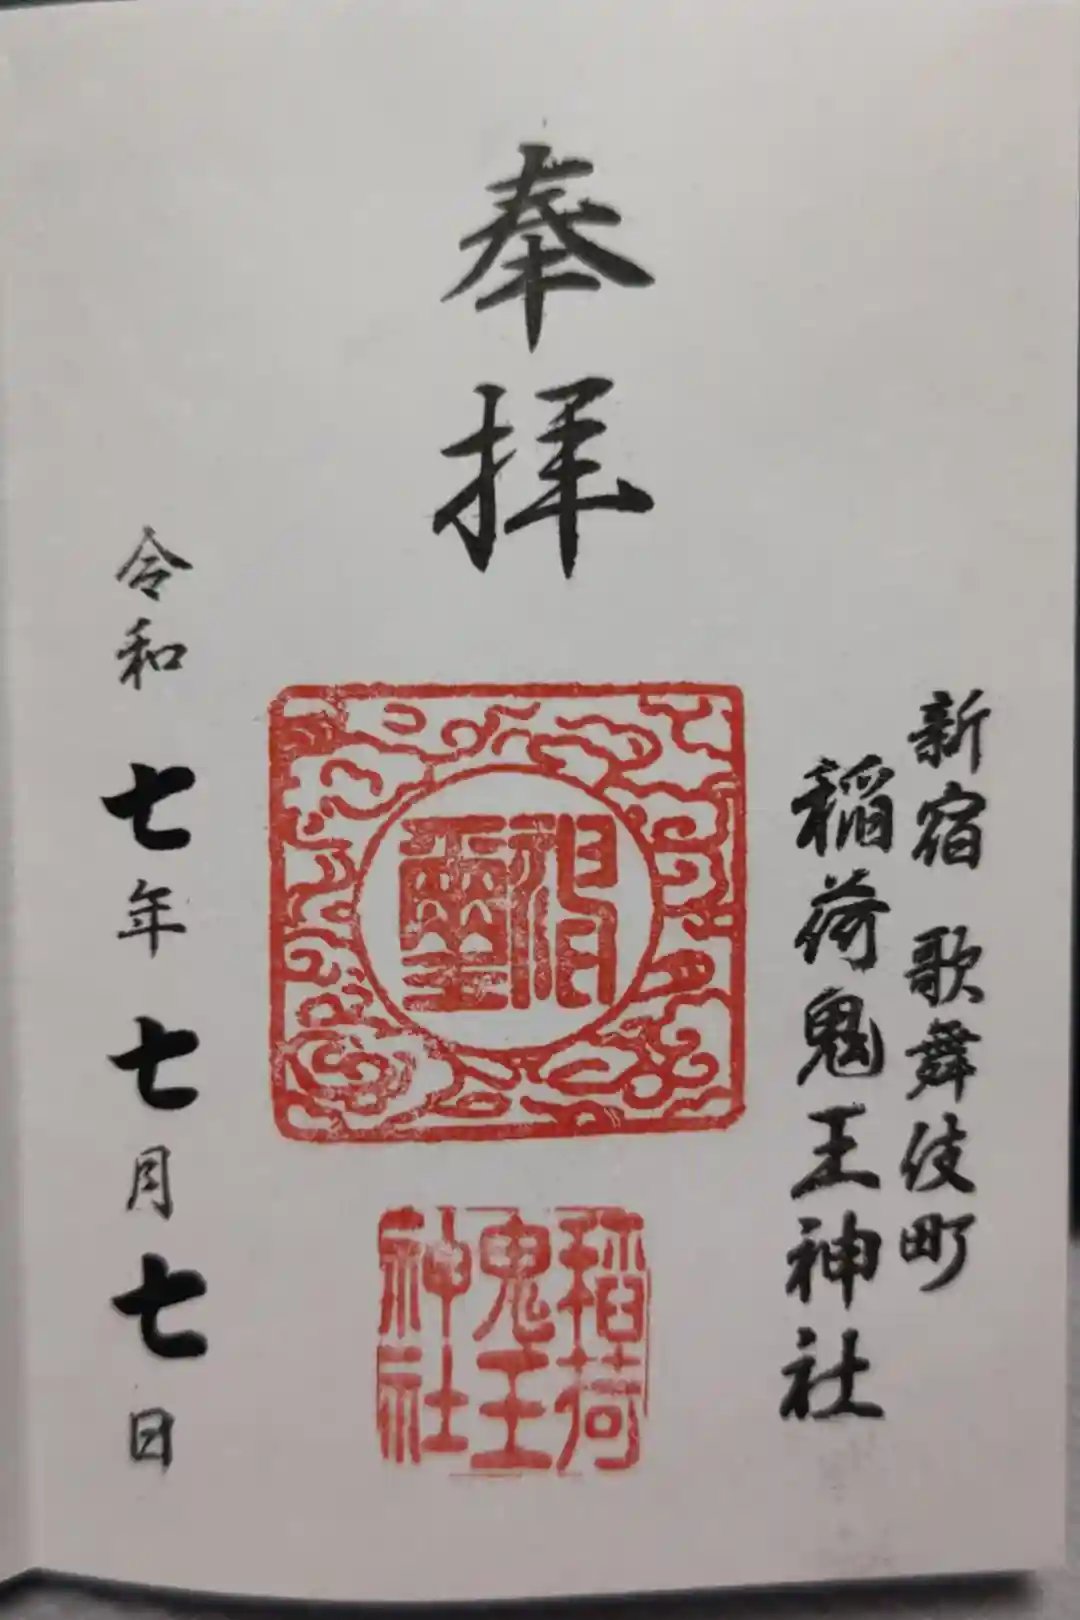 奉拝
新宿 歌舞伎町
稲荷鬼王神社
稲荷
鬼王
神社
令和 七年 七月 七日